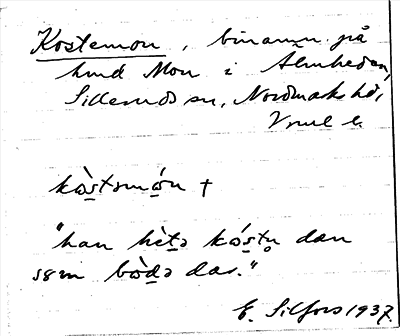 Kostemon, binamn på
hmd Mon i Älmheden,
Silleruds sn, Nordmarks hd,
Vrml l.
kòs̱təmó̱n †
"han hèṯə kós̱tn̥ dan
sɞm bòḏə dar."
E. Silfors 1937.